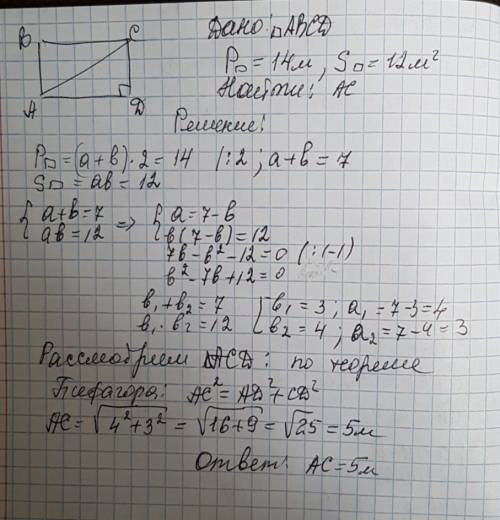 B C Дано: □ABCD
P□ = 14м, S□ = 12м²
A D Найти: AC
Решение:
P□ = (a + b) · 2 = 14 | : 2 ; a + b = 7
S□ = ab = 12
{ a + b = 7 => { a = 7 - b
{ ab = 12 { b(7 - b) = 12
7b - b² - 12 = 0 | : (-1)
b² - 7b + 12 = 0
b₁ + b₂ = 7 [ b₁ = 3 ; a₁ = 7 - 3 = 4
b₁ · b₂ = 12 [ b₂ = 4 ; a₂ = 7 - 4 = 3
Рассмотрим ΔACD: по теореме
Пифагора: AC² = AD² + CD²
AC = √(4² + 3²) = √(16 + 9) = √25 = 5м
Ответ: AC = 5м